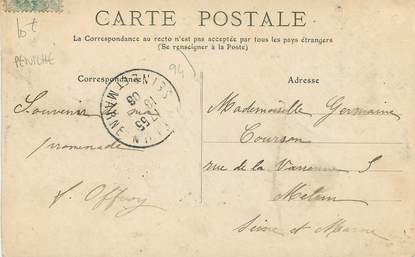 CARTE POSTALE
La Correspondance au recto n'est pas acceptée par tous les pays étrangers
(Se renseigner à la Poste)
bt
PENICHE
94
Correspondance
Adresse
SEINE ET MARNE
Souvenir
promenade
f. Offroy
Mademoiselle Germaine
Courson
rue de la Varenne 5
Melun
Seine et Marne